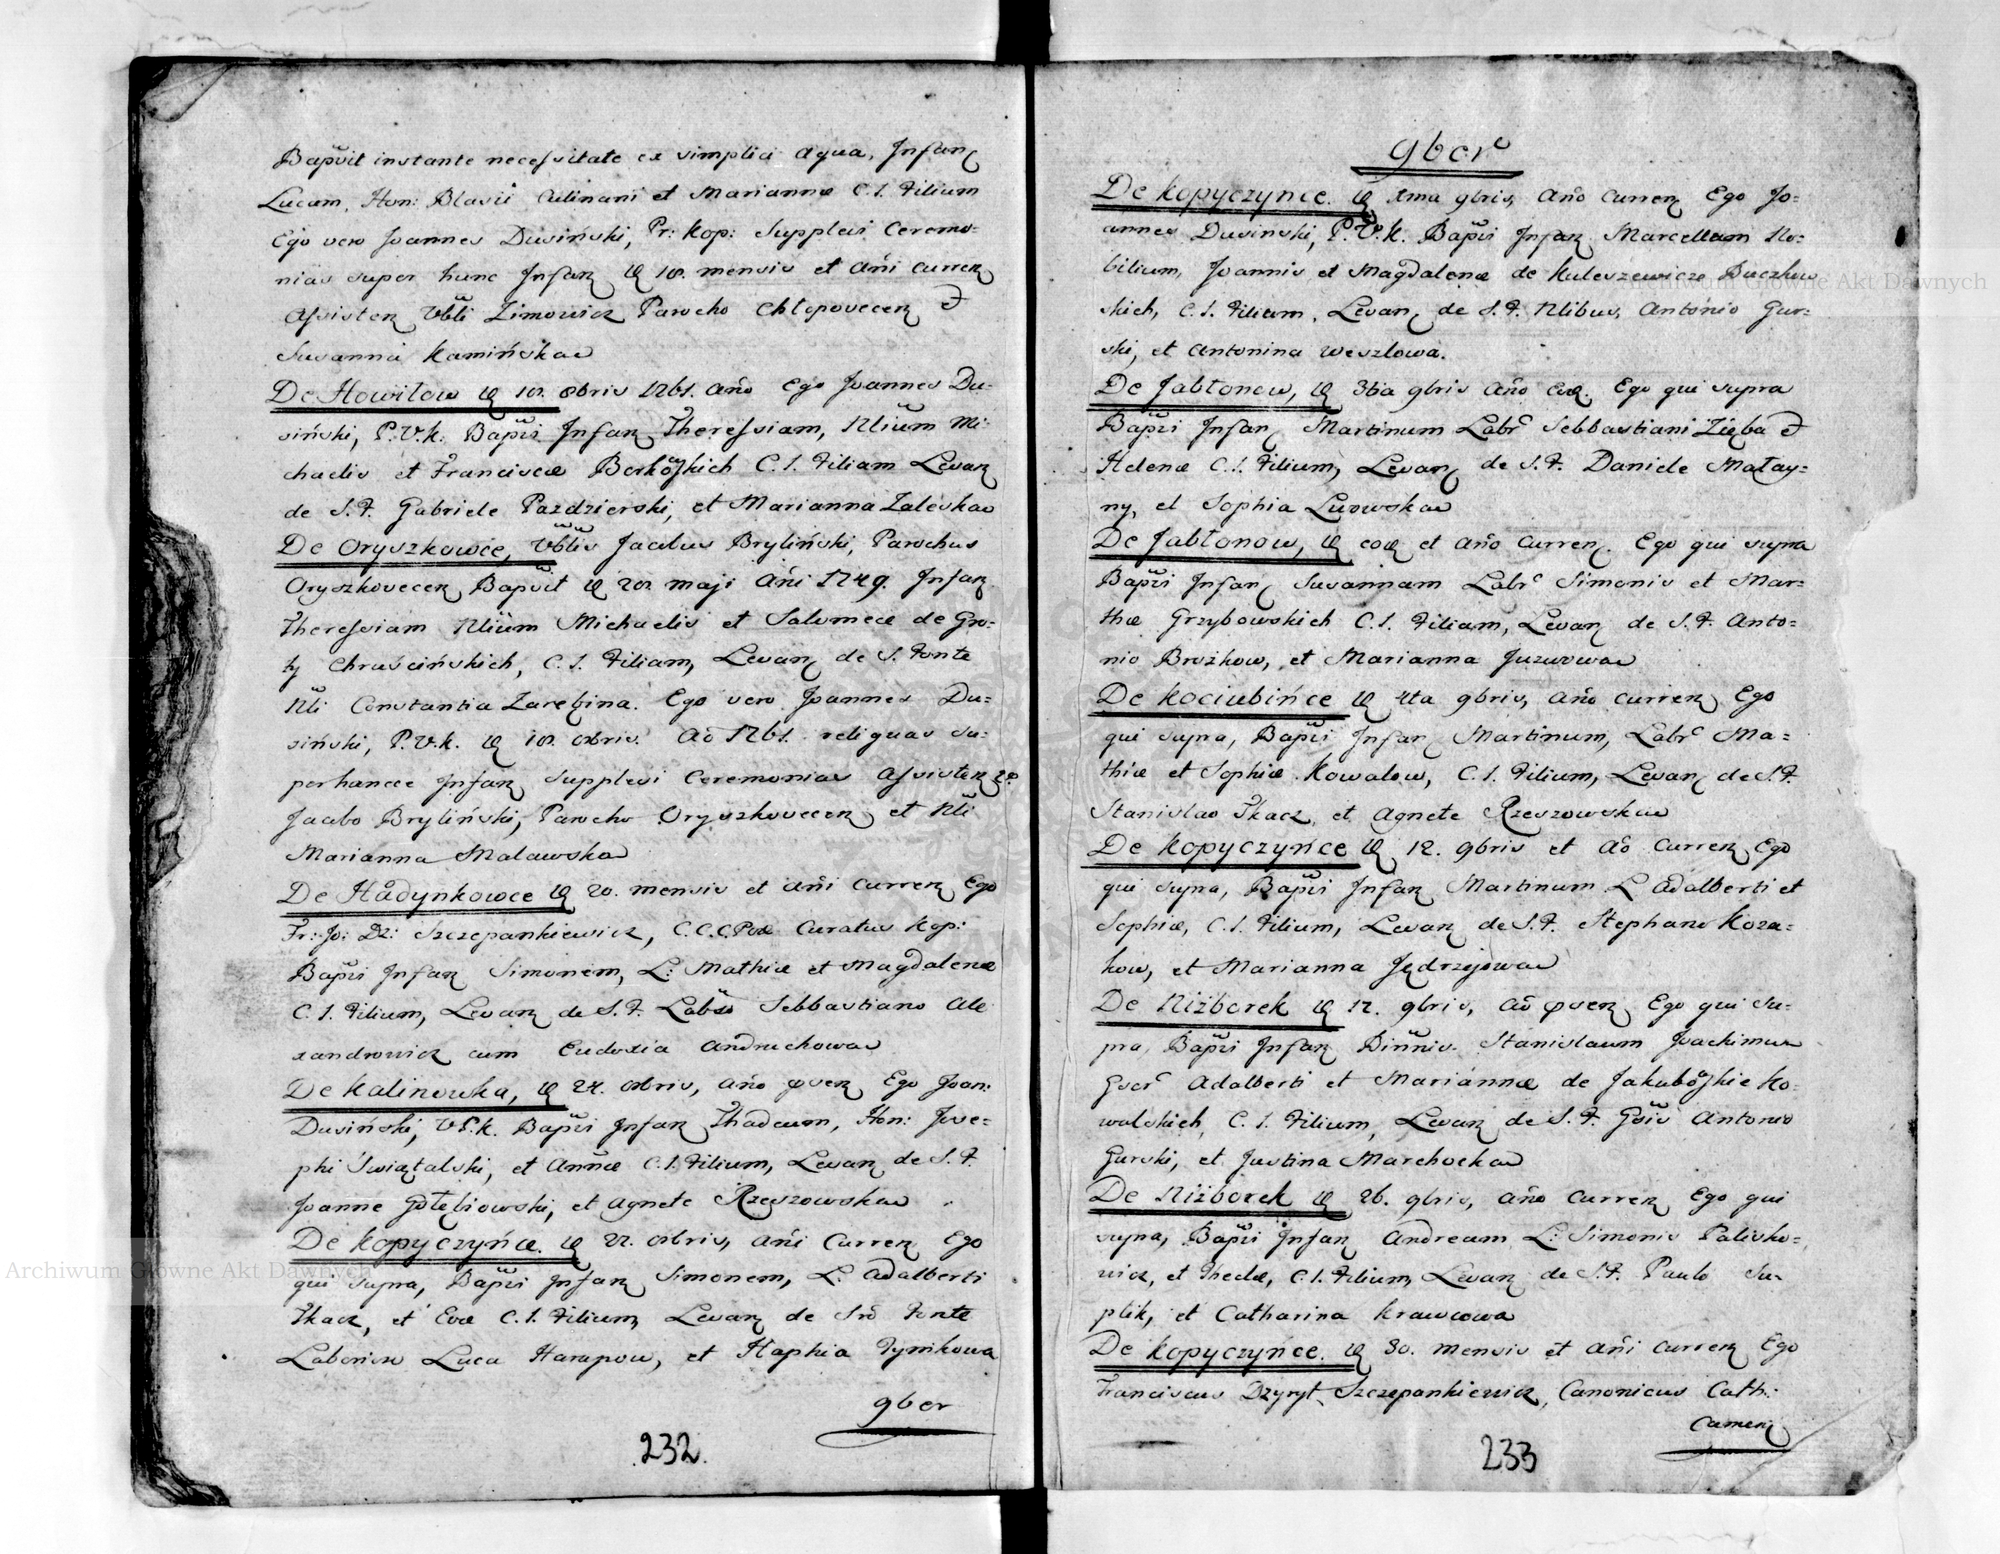 Bapvit instante necessitate ex simplici aqua, Infan
Lucam, Hon: Blasii Culinani et Mariannæ C. I. Filium
Ego vero Joannes Dusiński, Pr: Kop: Supplevi Ceremo-
nias super hunc Infan 10. mensis et añi curren
Assisten Vbli Zimowicz Parocho Chłopovecen &
Susanna Kamińska
De Howiłow 10. 8bris 1761. año Ego Joannes Du-
siński, P.V.K. Bapzi Infan Theressiam, Nlium Mi-
chaelis et Franciscæ Borkowskich C. I. Filiam Levan
de S. F. Gabriele Pazdzierski, et Marianna Zaleska
De Oryszkowce, Vblis Jacobus Bryliński, Parochus
Oryszkovecen Bapvit 20. maji Añi 1749. Infan
Theressiam Nlium Michaelis et Salomeæ de Gro-
ty Chraścińskich, C. I. Filiam, Levan de S. Fonte
Nli Constantia Zarębina. Ego vero Joannes Du-
siński, P.V.K. 10. 8bris. Aõ 1761. reliquas su-
perhancce Infan Supplevi Ceremonias Assisten
Jacobo Bryliński, Parocho Oryszkovecen et Nli
Marianna Malawska
De Hadynkowce 20. mensis et añi curren Ego
Fr: Jo: Dz: Szczepankiewicz, C.C.C. Curatus Kop:
Bapzi Infan Simonem, L: Mathiæ et Magdalenæ
C. I. Filium, Levan de S. F. Labso Sebbastiano Ale
xandrowicz cum Eudoxia Andruchowa
De Kalinowka, 24. 8bris, Año Ego Joan:
Dusiński, V.P.K. Bapzi Infan Thadeum, Hon: Jose-
phi Swiątalski, et Annæ C. I. Filium, Levan de S. F.
Joanne Gołębiowski, et Agnete Rzeszowska
De Kopyczyńce. 8bris, Añi Curren Ego
qui supra, Bapzi Infan Simonem, L. Adalberti
Tkacz, et Evæ C. I. Filium, Levan de Sro Fonte
Luca Harapow, et Haphia Tymkowa
9ber
232.
9ber
De Kopyczynce. 1ma 9bris, Año Curren Ego Jo-
annes Dusinski, P.V.K. Bapzi Infan Marcellum No-
bilium, Joannis et Magdalenæ de Kuleszewicze Buczkow
skich, C. I. Filium, Levan de S. F. Nlibus, Antonio Gur-
ski, et Antonina Weszlowa.
De Jabłonow, 3tia 9bris Año Ego qui supra
Bapzi Infan Martinum Labr Sebbastiani Zięba &
Helenæ C. I. Filium, Levan de S. F. Daniele Małay-
ny, et Sophia Lusowska
De Jabłonow, et año curren. Ego qui supra
Bapzi Infan Susannam Labr Simonis et Mar-
thæ Grzybowskich C. I. Filiam, Levan de S. F. Anto-
nio Brożkow, et Marianna Juzwowa
De Kociubińce 4ta 9bris, Año Curren Ego
qui supra, Bapzi Infan Martinum, Labr Ma-
thiæ et Sophiæ Kowalow, C. I. Filium, Levan de S. F.
Stanislao Tkacz, et Agnete Rzeszowska
De Kopyczyńce 12. 9bris et aõ curren Ego
qui supra, Bapzi Infan Martinum L Adalberti et
Sophiæ, C. I. Filium, Levan de S. F. Stephano Koza-
kow, et Marianna Jędrzejowa
De Niżborek 12. 9bris, aõ Ego qui su-
pra, Bapzi Infan Binnis. Stanislaum Joachimum
Adalberti et Mariannæ de Jakubowskie Ko-
walskich, C. I. Filium, Levan de S. F. Antonio
Gurski, et Justina Marchocka
De Niżborek 26. 9bris, año curren Ego qui
supra, Bapzi Infan Andream L: Simonis Palisko-
wicz, et Theclæ, C. I. Filium, Levan de S. F. Paulo Su-
plik, et Catharina Krawcowa
De Kopyczyńce. 30. mensis et añi curren Ego
Franciscus Dzyryt Szczepankiewicz, Canonicus Cath:
Camen
233
Archiwum Główne Akt Dawnych
Archiwum Główne Akt Dawnych